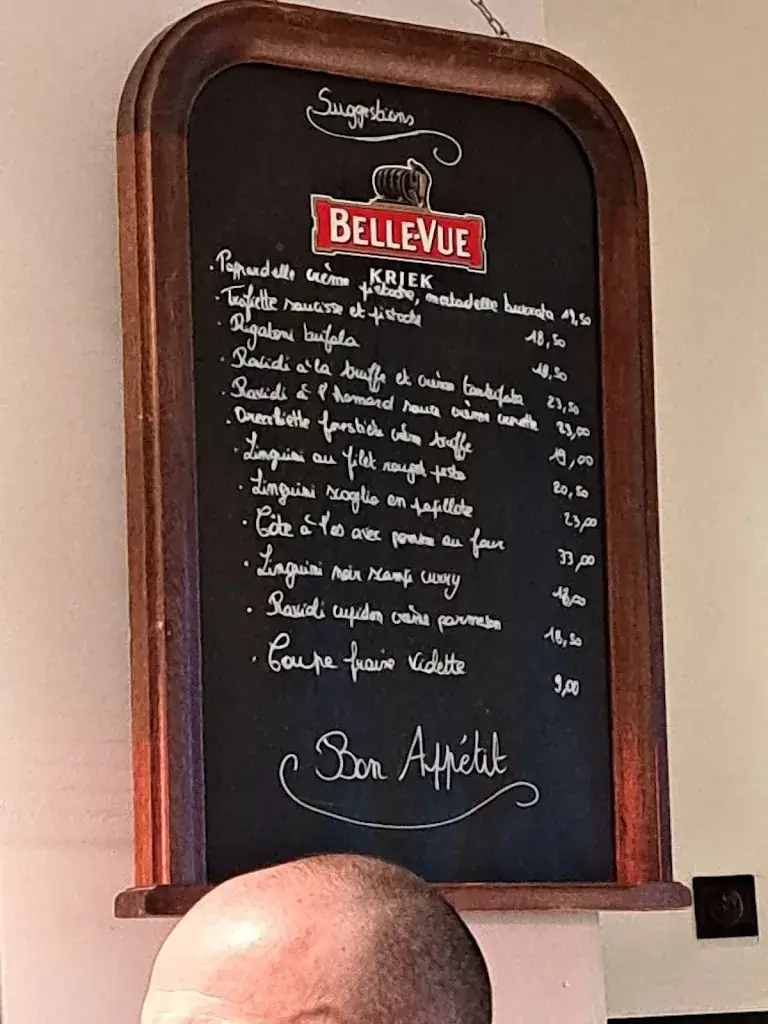 Suggestions
BELLE-VUE
KRIEK
· Pappardelle crème pistache, mortadelle burrata 19,50
· Trofiette saucisse et pistache 18,50
· Rigatoni bufala 18,50
· Ravioli à la truffe et crème tartufata 23,50
· Ravioli à l'homard sauce crème 23,00
· Orecchiette forestière crème truffe 19,00
· Linguini au filet rouget pesto 20,50
· Linguini scoglio en papillote 23,00
· Côte à l'os avec pomme au four 33,00
· Linguini noir scampi curry
· Ravioli cupidon crème parmesan 18,50
· Coupe fraise 9,00
Bon Appétit